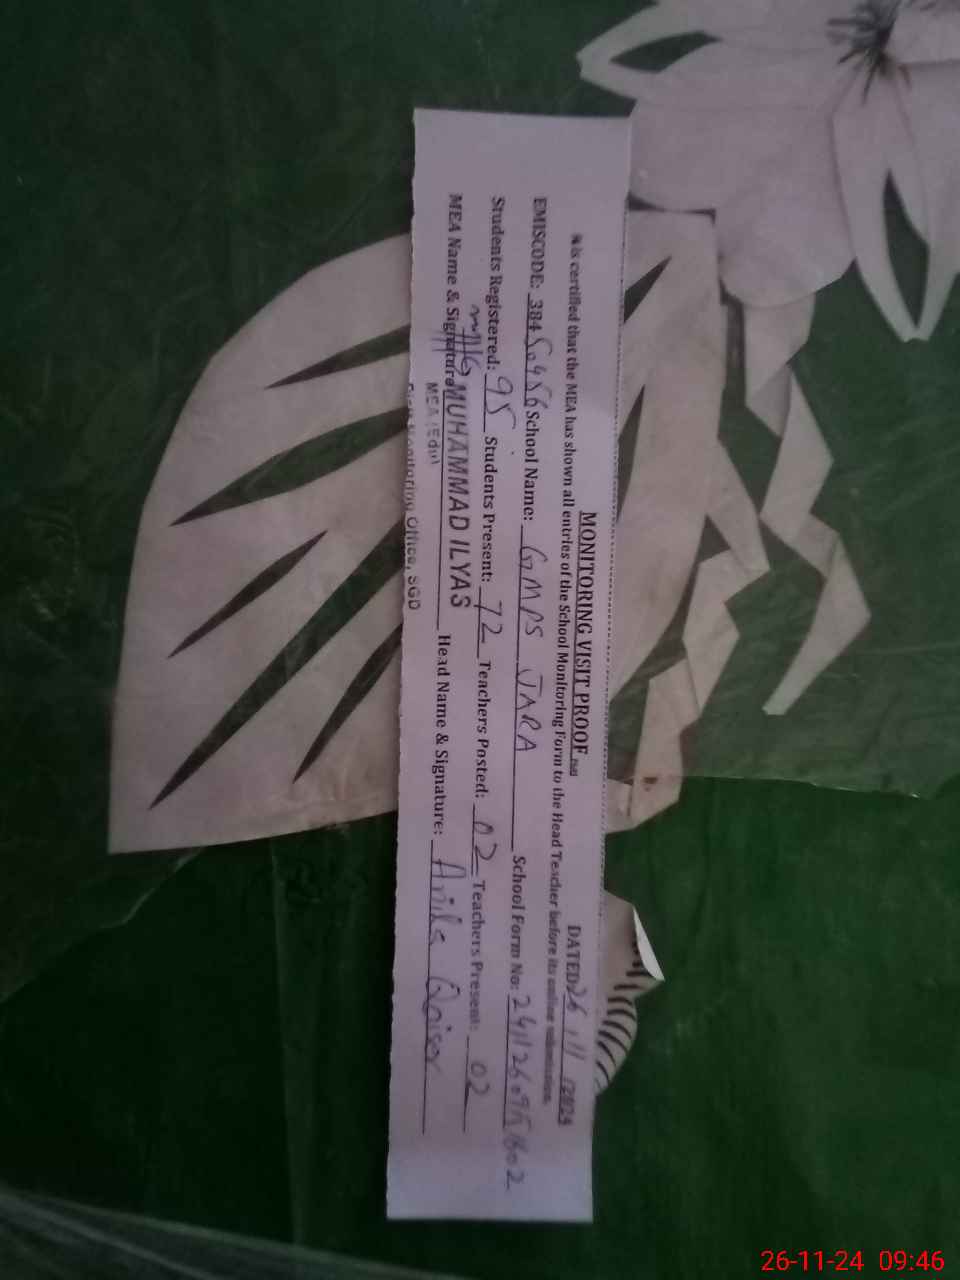 MONITORING VISIT PROOF
DATED 26/11/2024
It is certified that the MEA has shown all entries of the School Monitoring Form to the Head Teacher before its online submission.
EMISCODE: 384 School Name: GMPS JARA School Form No:
Students Registered: 95 Students Present: 72 Teachers Posted: 02 Teachers Present: 02
MEA Name & Signature MUHAMMAD ILYAS Head Name & Signature: Anila Qaiser
MEA (Edu)
Monitoring Office, SGD
26-11-24 09:46